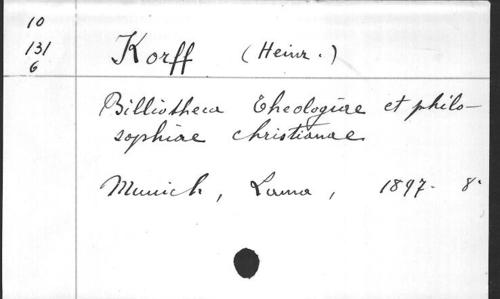 10
131
6
Korff (Heinr.)
Billiotheca Theologiae et philo-
sophiae christianae
Munich, Lama, 1897. 8°